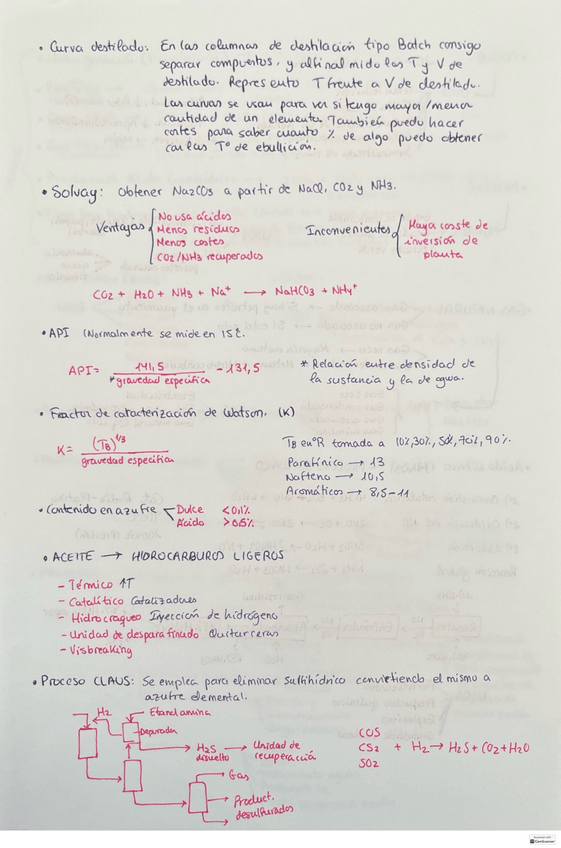 • Curva destilado: En las columnas de destilación tipo Batch consigo
separar compuestos, y al final mido las T y V de
destilado. Represento T frente a V de destilado.
Las curvas se usan para ver si tengo mayor/menor
cantidad de un elemento. También puedo hacer
cortes para saber cuanto % de algo puedo obtener
con las Tº de ebullición.
• Solvay: Obtener Na2CO3 a partir de NaCl, CO2 y NH3.
Ventajas
No usa ácidos
Menos residuos
Menos costes
CO2/NH3 recuperados
Inconvenientes
Mayor coste de
inversión de
planta
CO2 + H2O + NH3 + Na+ → NaHCO3 + NH4+
• API (Normalmente se mide en 15ºC.
API = 141,5 / *gravedad específica - 131,5
* Relación entre densidad de
la sustancia y la de agua.
• Factor de caracterización de Watson. (K)
K = (TB)^1/3 / gravedad específica
TB en ºR tomada a 10%, 30%, 50%, 70%, 90%.
Parafínico → 13
Nafteno → 10,5
Aromático → 8,5-11
• Contenido en azufre
Dulce <0,1%
Ácido >0,5%
• ACEITE → HIDROCARBUROS LIGEROS
- Térmico ↑T
- Catalítico Catalizadores
- Hidrocraqueo Inyección de hidrógeno
- Unidad de desparafinado Quitar ceras
- Visbreaking
• Proceso CLAUS: Se emplea para eliminar sulfihídrico convirtiendo el mismo a
azufre elemental.
H2
Etanolamina
Depurador
H2S disuelto → Unidad de recuperación
Gas
Product. desulfurados
COS
CS2 + H2 → H2S + CO2 + H2O
SO2
Scanned with
CamScanner